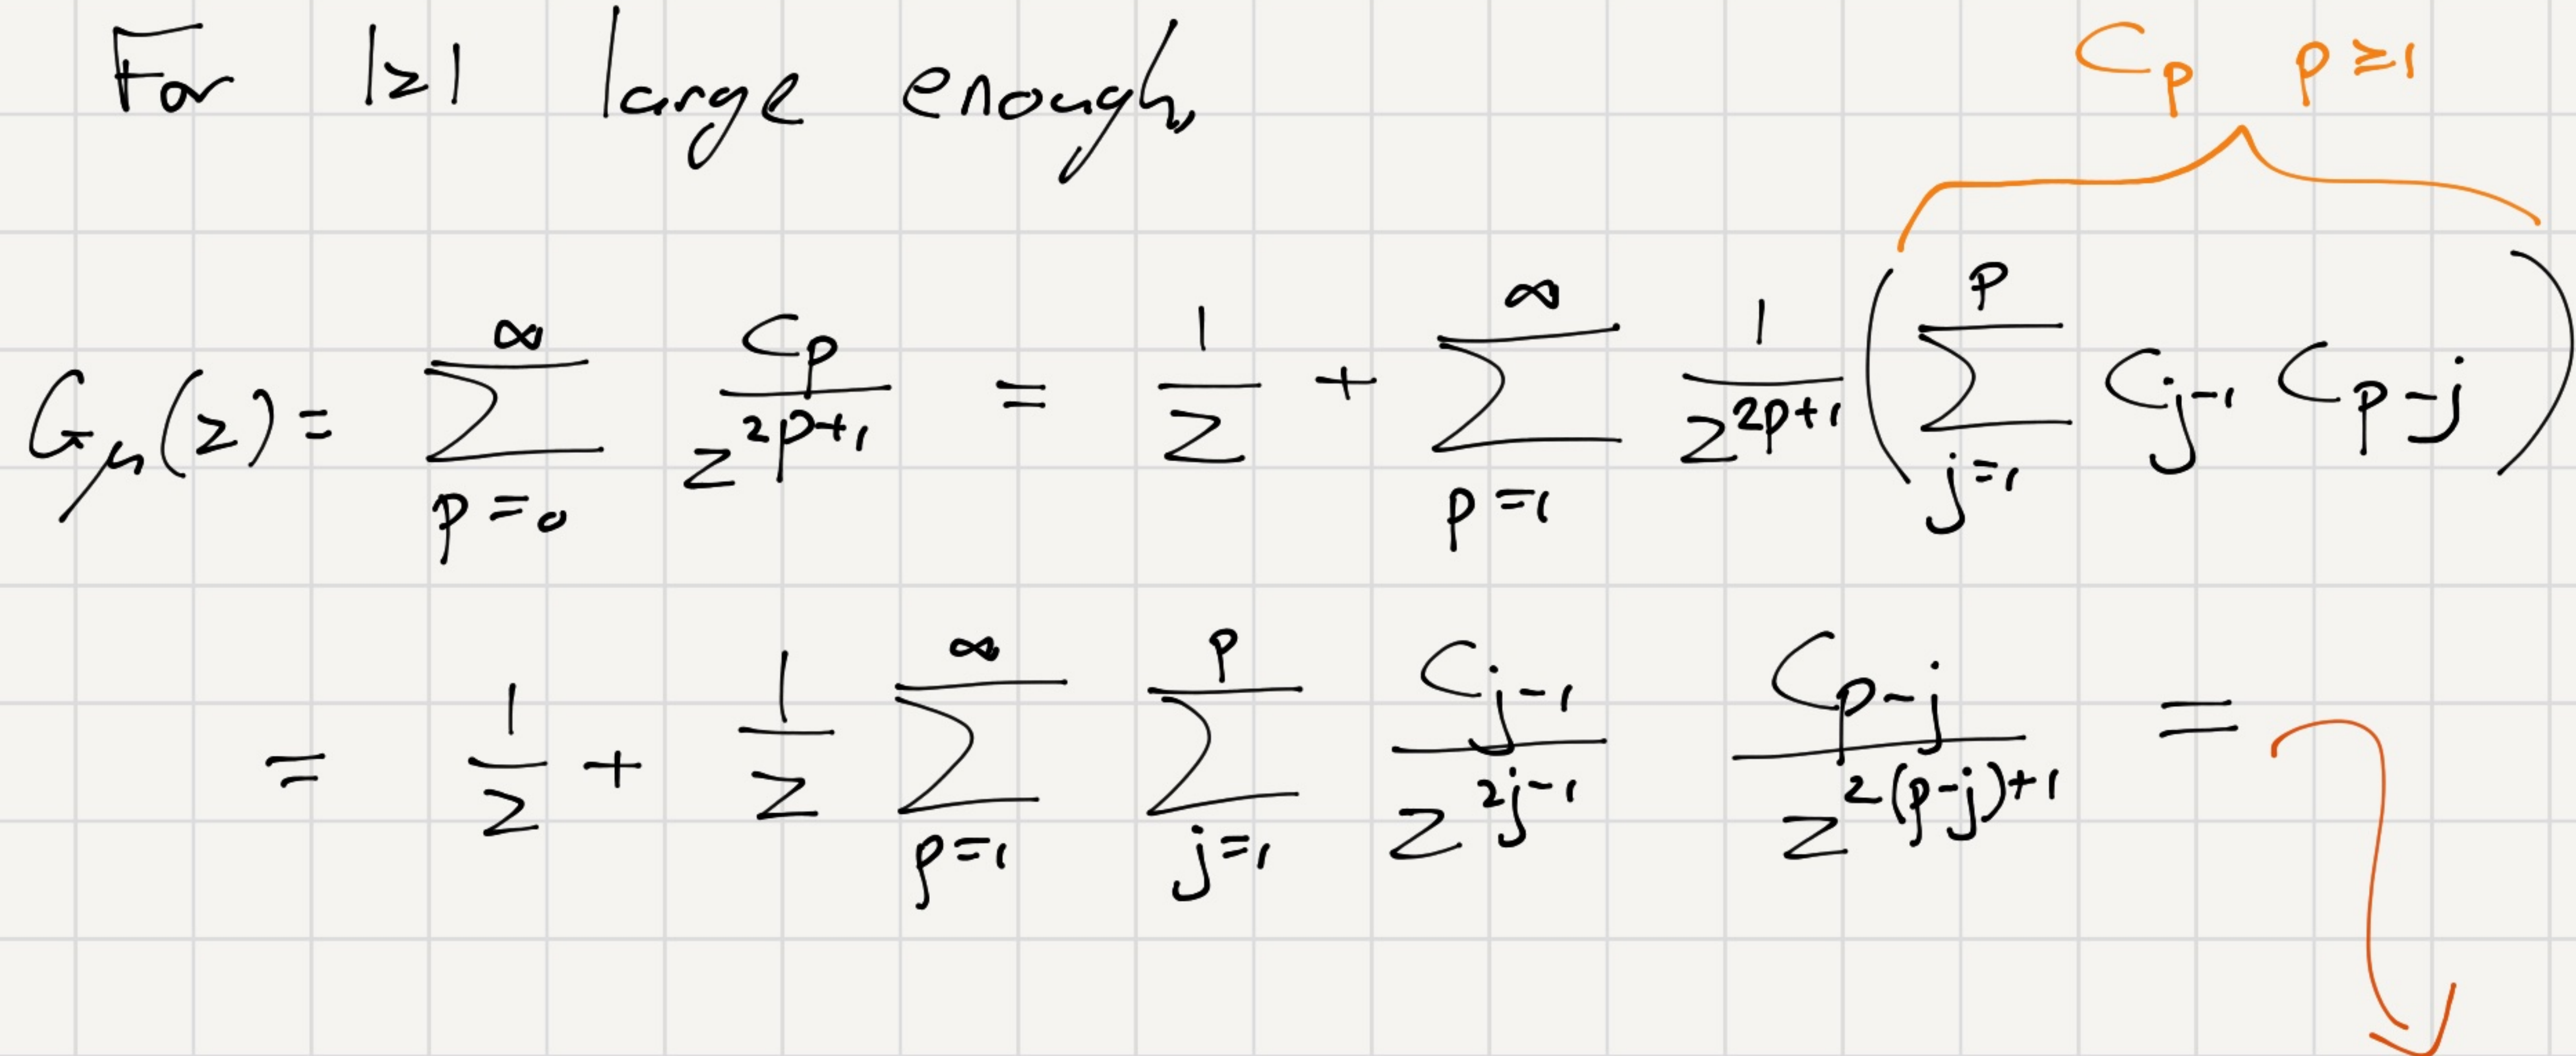 For |z| large enough,
C_p p ≥ 1
G_μ(z) = \sum_{p=0}^{∞} \frac{C_p}{z^{2p+1}} = \frac{1}{z} + \sum_{p=1}^{∞} \frac{1}{z^{2p+1}} ( \sum_{j=1}^{p} C_{j-1} C_{p-j} )
= \frac{1}{z} + \frac{1}{z} \sum_{p=1}^{∞} \sum_{j=1}^{p} \frac{C_{j-1}}{z^{2j-1}} \frac{C_{p-j}}{z^{2(p-j)+1}} =